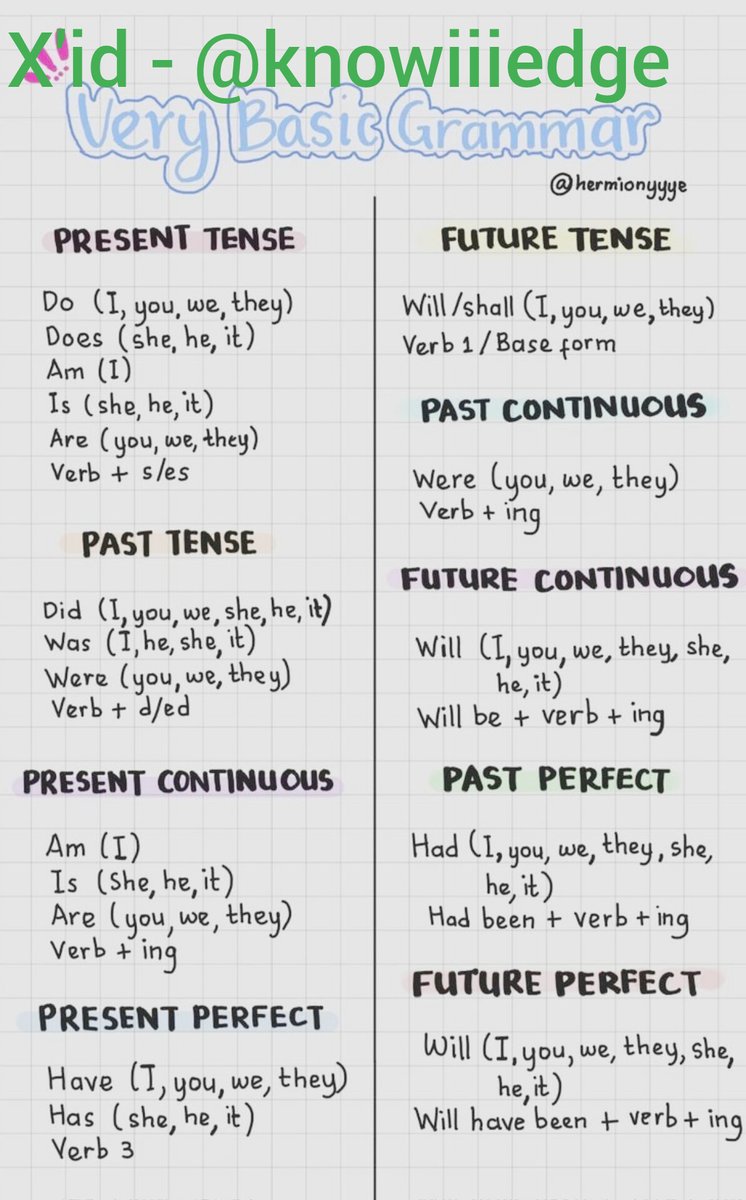 X'id - @knowiiiedge
Very Basic Grammar
@hermionyyye
PRESENT TENSE
Do (I, you, we, they)
Does (she, he, it)
Am (I)
Is (she, he, it)
Are (you, we, they)
Verb + s/es
PAST TENSE
Did (I, you, we, she, he, it)
Was (I, he, she, it)
Were (you, we, they)
Verb + d/ed
PRESENT CONTINUOUS
Am (I)
Is (She, he, it)
Are (you, we, they)
Verb + ing
PRESENT PERFECT
Have (I, you, we, they)
Has (she, he, it)
Verb 3
FUTURE TENSE
Will/shall (I, you, we, they)
Verb 1 / Base form
PAST CONTINUOUS
Were (you, we, they)
Verb + ing
FUTURE CONTINUOUS
Will (I, you, we, they, she,
he, it)
Will be + verb + ing
PAST PERFECT
Had (I, you, we, they, she,
he, it)
Had been + verb + ing
FUTURE PERFECT
Will (I, you, we, they, she,
he, it)
Will have been + verb + ing